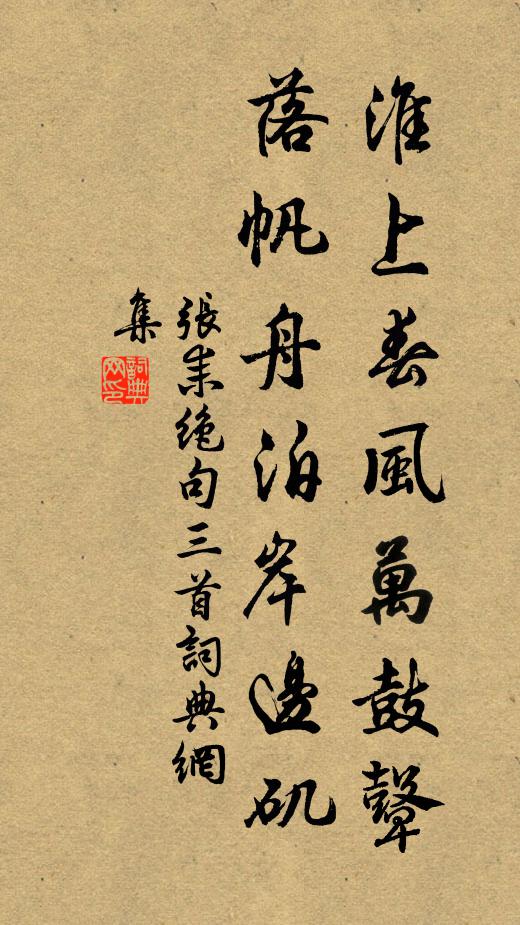 淮上春風萬鼓聲
落帆舟泊岸邊磯
張耒絶句三首詞典網
集
詞典
网印